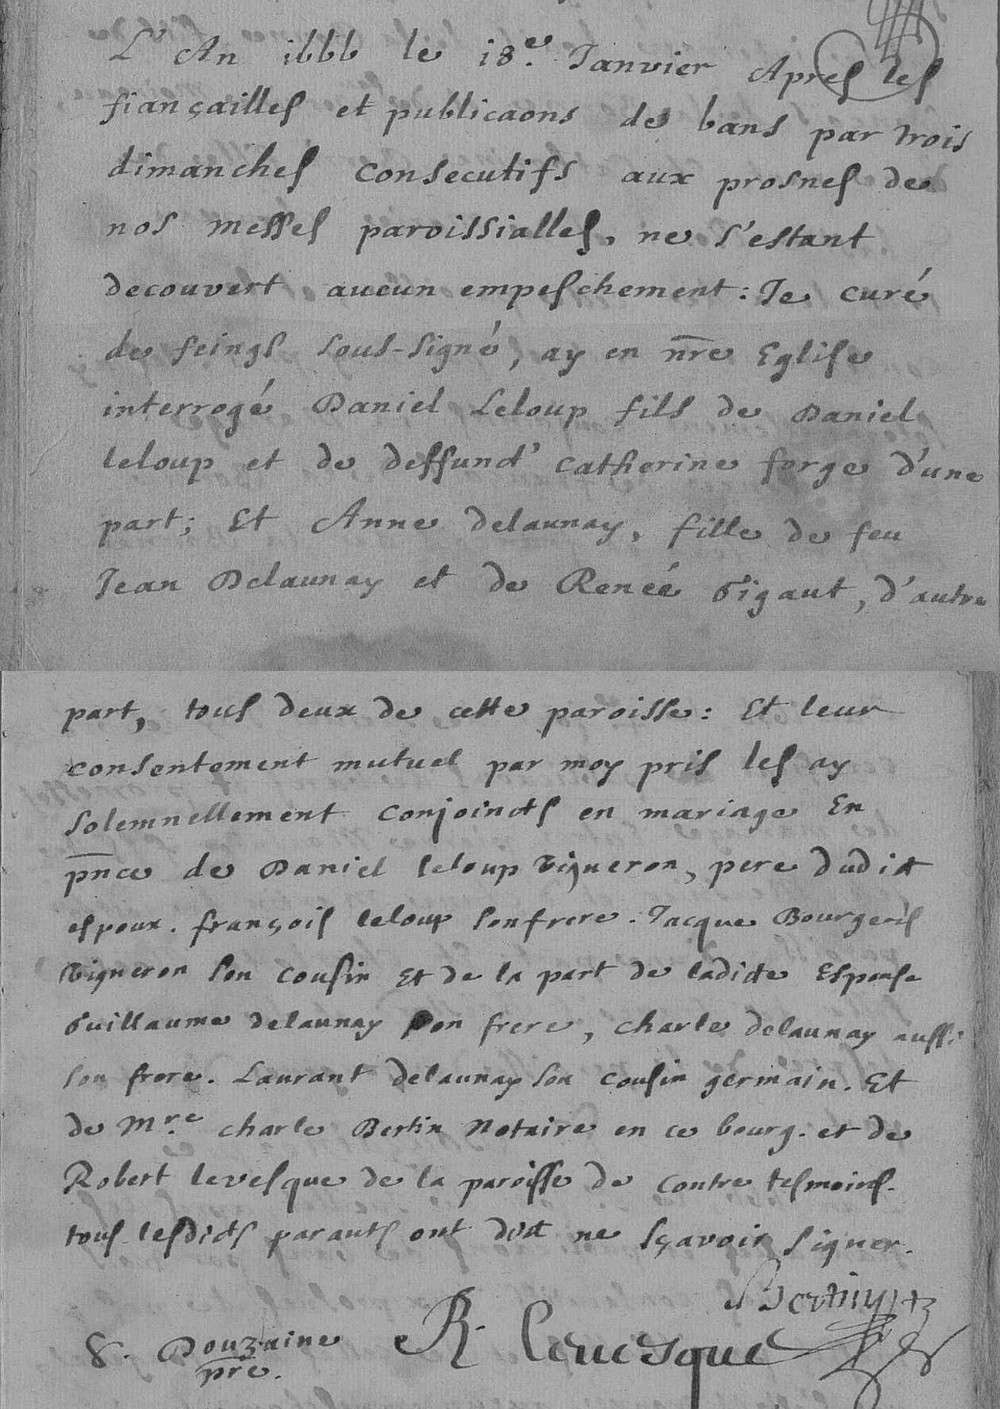 L'An 1666 le 18e. Janvier Apres les
fiançailles et publicaons de bans par trois
dimanches consecutifs aux prosnes de
nos messes paroissialles, ne s'estant
decouvert aucun empeschement: Je curé
de feings sous-signé, ay en nre Eglise
interrogé Daniel Leloup fils de Daniel
leloup et de deffunct' catherine forge d'une
part; Et Anne delaunay, fille de feu
Jean Delaunay et de Reneé Gigaut, d'autre
part, tous deux de cette paroisse: Et leur
consentement mutuel par moy pris les ay
solemnellement conjoincts en mariage En
pnce de Daniel leloup Vigneron, pere dudict
espoux. françois leloup son frere. Jacque Bourgeris
Vigneron son cousin Et de la part de ladicte Espouse
Guillaume delaunay son frere, charle delaunay aussi
son frere. Laurant delaunay son cousin germain. Et
de Mre. charle Bertin Notaire en ce bourg. et de
Robert levesque de la paroisse de contre tesmoins.
tous lesdicts parants ont dict ne sçavoir signer.
Bertin
G. Douzaine R. Levesque
pre.